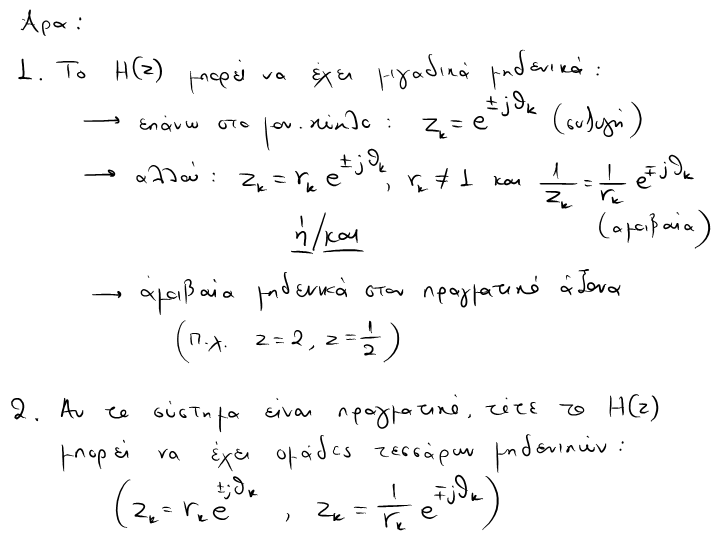 Άρα:
1. Το H(z) μπορεί να έχει μιγαδικά μηδενικά:
→ επάνω στο μον. κύκλο: z_k = e^{±jθ_k} (συζυγή)
→ αλλού: z_k = r_k e^{±jθ_k}, r_k ≠ 1 και 1/z_k = 1/r_k e^{∓jθ_k}
(αμοιβαία)
ή/και
→ αμοιβαία μηδενικά στον πραγματικό άξονα
(π.χ. z = 2, z = 1/2)
2. Αν το σύστημα είναι πραγματικό, τότε το H(z)
μπορεί να έχει ομάδες τεσσάρων μηδενικών:
(z_k = r_k e^{±jθ_k} , z_k = 1/r_k e^{∓jθ_k})